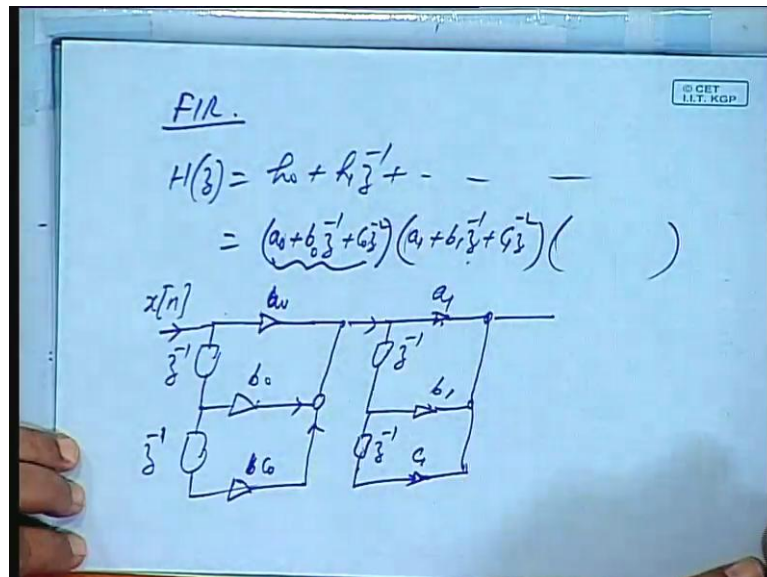 © CET
I.I.T. KGP
FIR.
H(z) = h₀ + h₁z⁻¹ + - - —
= (a₀+b₀z⁻¹+c₀z⁻²)(a₁+b₁z⁻¹+c₁z⁻²)( )
x[n] a₀ a₁
z⁻¹ z⁻¹
b₀ b₁
z⁻¹ c₀ z⁻¹ c₁